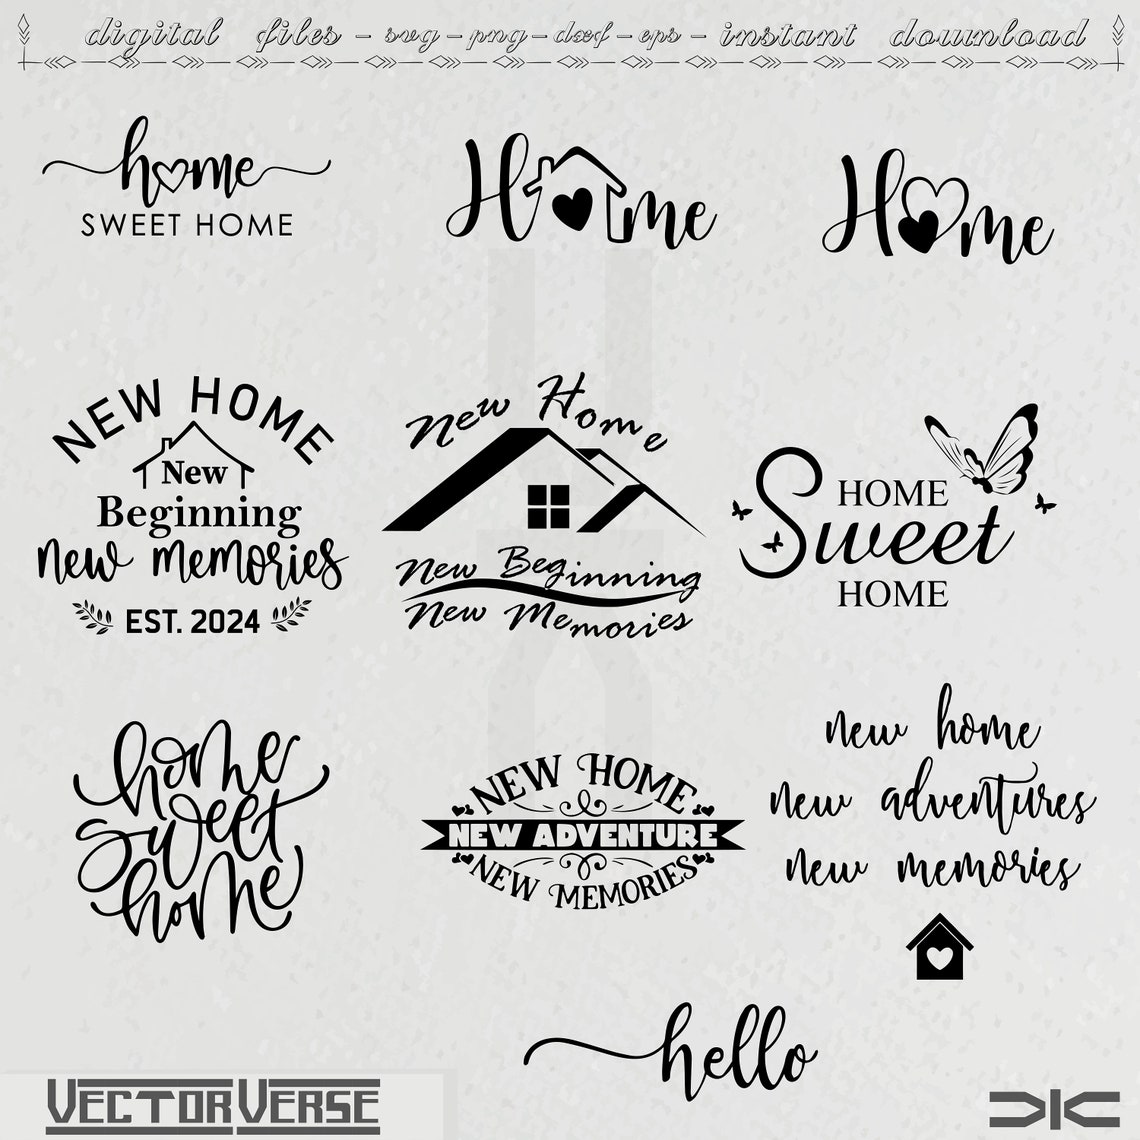 digital files - svg - png - dxf - eps - instant download
home
SWEET HOME
Home
Home
NEW HOME
New
Beginning
new memories
EST. 2024
New Home
New Beginning
New Memories
HOME
Sweet
HOME
home
sweet
home
NEW HOME
NEW ADVENTURE
NEW MEMORIES
new home
new adventures
new memories
hello
VECTORVERSE